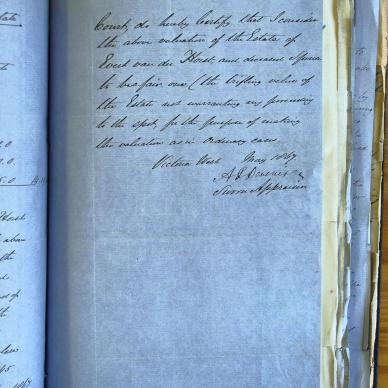 Court, do hereby Certify that I consider
the above valuation of the Estate of
Evert van der Horst and deceased Spouse
to be a fair one (the trifling value of
the Estate not warranting my proceeding
to the spot, for the purpose of making
the valuation as in ordinary cases
Victoria West May 1867
Sworn Appraiser
tate
0
0.
5.0
Horst
above
the
1867